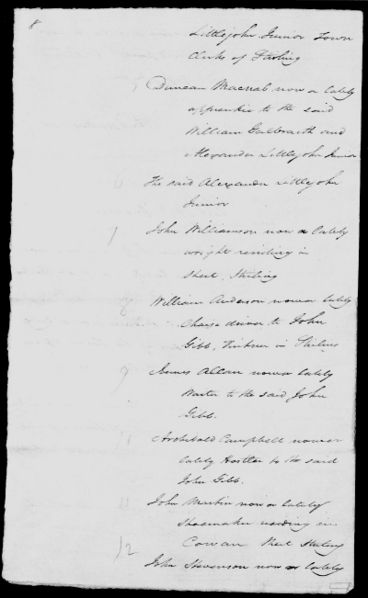 8
Littlejohn Junior Town
Clerks of Stirling
Duncan Macnab now or lately
apprentice to the said
William Galbraith and
Alexander Littlejohn Junior
The said Alexander Littlejohn
Junior
John Williamson now or lately
wright residing in
Street, Stirling
William Anderson now or lately
Chaise driver to John
Gibb, in Stirling
James Allan now or lately
Waiter to the said John
Gibb.
Archibald Campbell now or
lately Hostler to the said
John Gibb.
John Martin now or lately
Shoemaker residing in
Cowan Street Stirling
12
John Stevenson now or lately